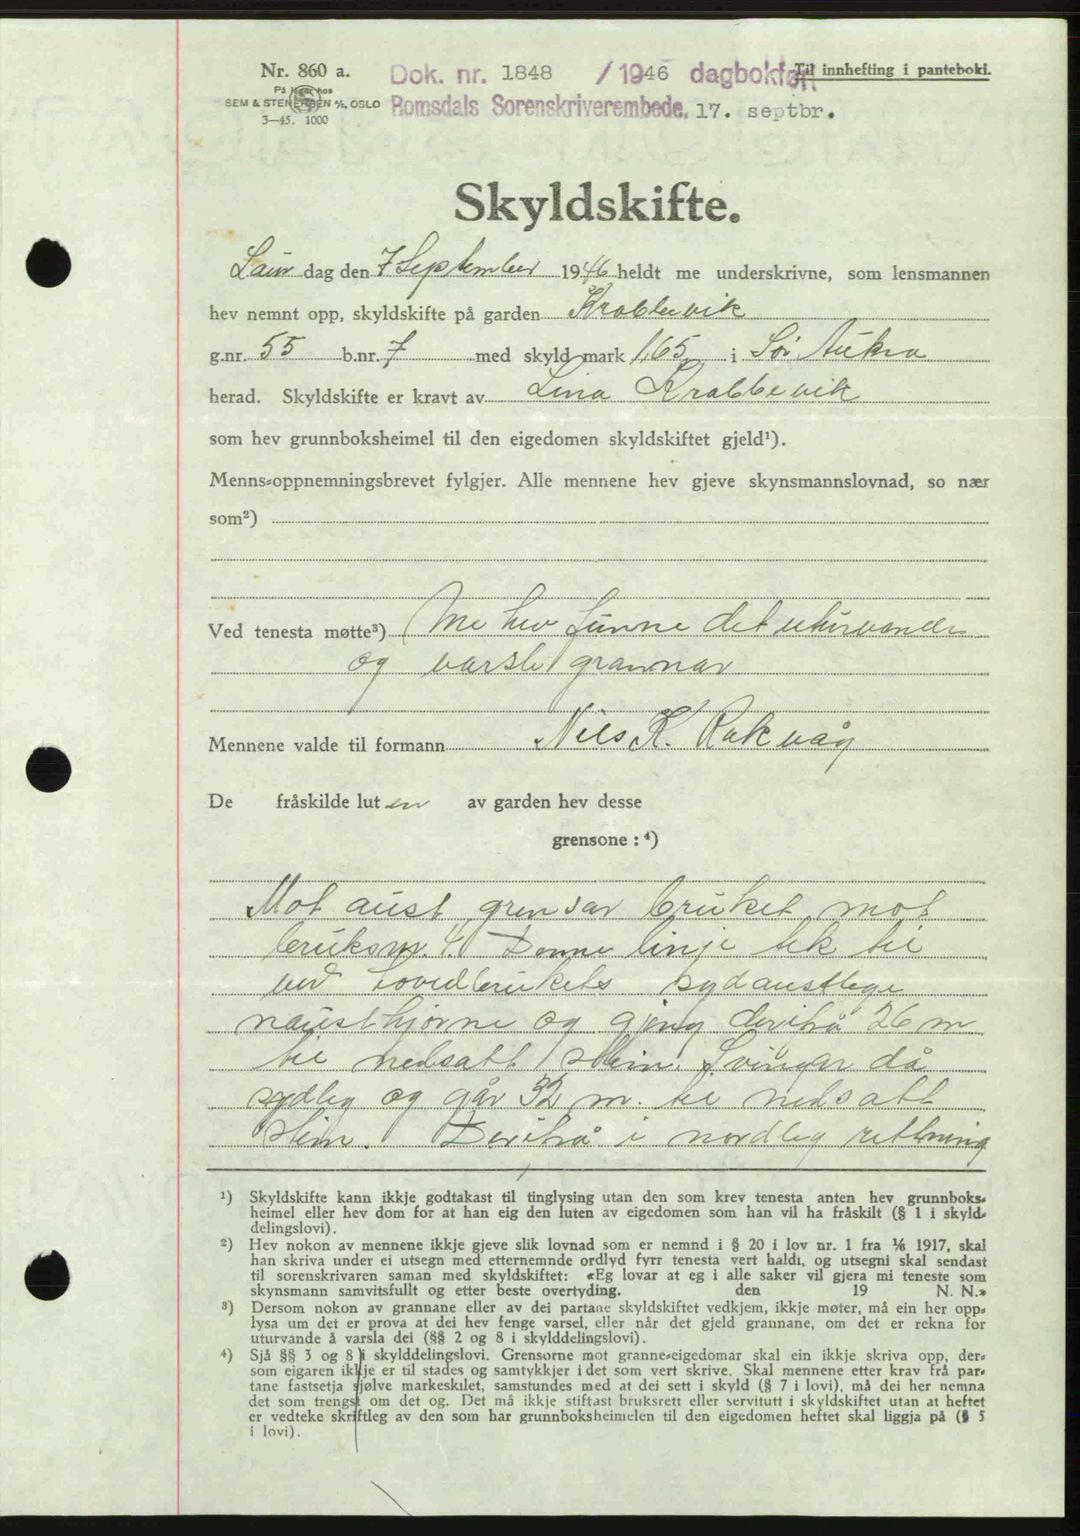 Nr. 860 a.
På lager hos
SEM & STENERSEN A/S, OSLO
3—45. 1000
Dok. nr. 1848 /1946 dagbokført
Til innhefting i panteboki.
Romsdals Sorenskriverembede, 17. septbr.
Skyldskifte.
Laur dag den 7 September 1946 heldt me underskrivne, som lensmannen
hev nemnt opp, skyldskifte på garden Krabbevik
g.nr. 55 b.nr. 7 med skyld mark 1,65 i Sør Aukra
herad. Skyldskifte er kravt av Lina Krabbevik
som hev grunnboksheimel til den eigedomen skyldskiftet gjeld¹).
Menns-oppnemningsbrevet fylgjer. Alle mennene hev gjeve skynsmannslovnad, so nær
som²)
Ved tenesta møtte³) Me hev funne det uturvande
og varsle grannar
Mennene valde til formann Nils K. Rakvåg
De fråskilde lut en av garden hev desse
grensone : ⁴)
Mot aust grensar bruket mot
bruksnr. 4. Denne linje tek til
ved hovedbrukets sydaustlege
nausthjørne og gjeng derifrå 26 m
til nedsatt stein. Svingar då
sydleg og går 32 m. til nedsatt
stein. Derifrå i nordleg rettning
¹) Skyldskifte kann ikkje godtakast til tinglysing utan den som krev tenesta anten hev grunnboks-
heimel eller hev dom for at han eig den luten av eigedomen som han vil ha fråskilt (§ 1 i skyld-
delingslovi).
²) Hev nokon av mennene ikkje gjeve slik lovnad som er nemnd i § 20 i lov nr. 1 fra 1/6 1917, skal
han skriva under ei utsegn med etternemnde ordlyd fyrr tenesta vert haldi, og utsegni skal sendast
til sorenskrivaren saman med skyldskiftet: «Eg lovar at eg i alle saker vil gjera mi teneste som
skynsmann samvitsfullt og etter beste overtyding. den 19 N. N.»
³) Dersom nokon av grannane eller av dei partane skyldskiftet vedkjem, ikkje møter, må ein her opp-
lysa um det er prova at dei hev fenge varsel, eller når det gjeld grannane, om det er rekna for
uturvande å varsla dei (§§ 2 og 8 i skylddelingslovi).
⁴) Sjå §§ 3 og 8 i skylddelingslovi. Grensorne mot granne-eigedomar skal ein ikkje skriva opp, der-
som eigaren ikkje er til stades og samtykkjer i det som vert skrive. Skal mennene etter krav frå par-
tane fastsetja sjølve markeskilet, samstundes med at dei sett i skyld (§ 7 i lovi), må dei her nemna
det som trengst om det og. Det må ikkje stiftast bruksrett eller servitutt i skyldskiftet utan at heftet
er vedteke skriftleg av den som har grunnboksheimelen til den eigedomen heftet skal liggja på (§ 5
i lovi).